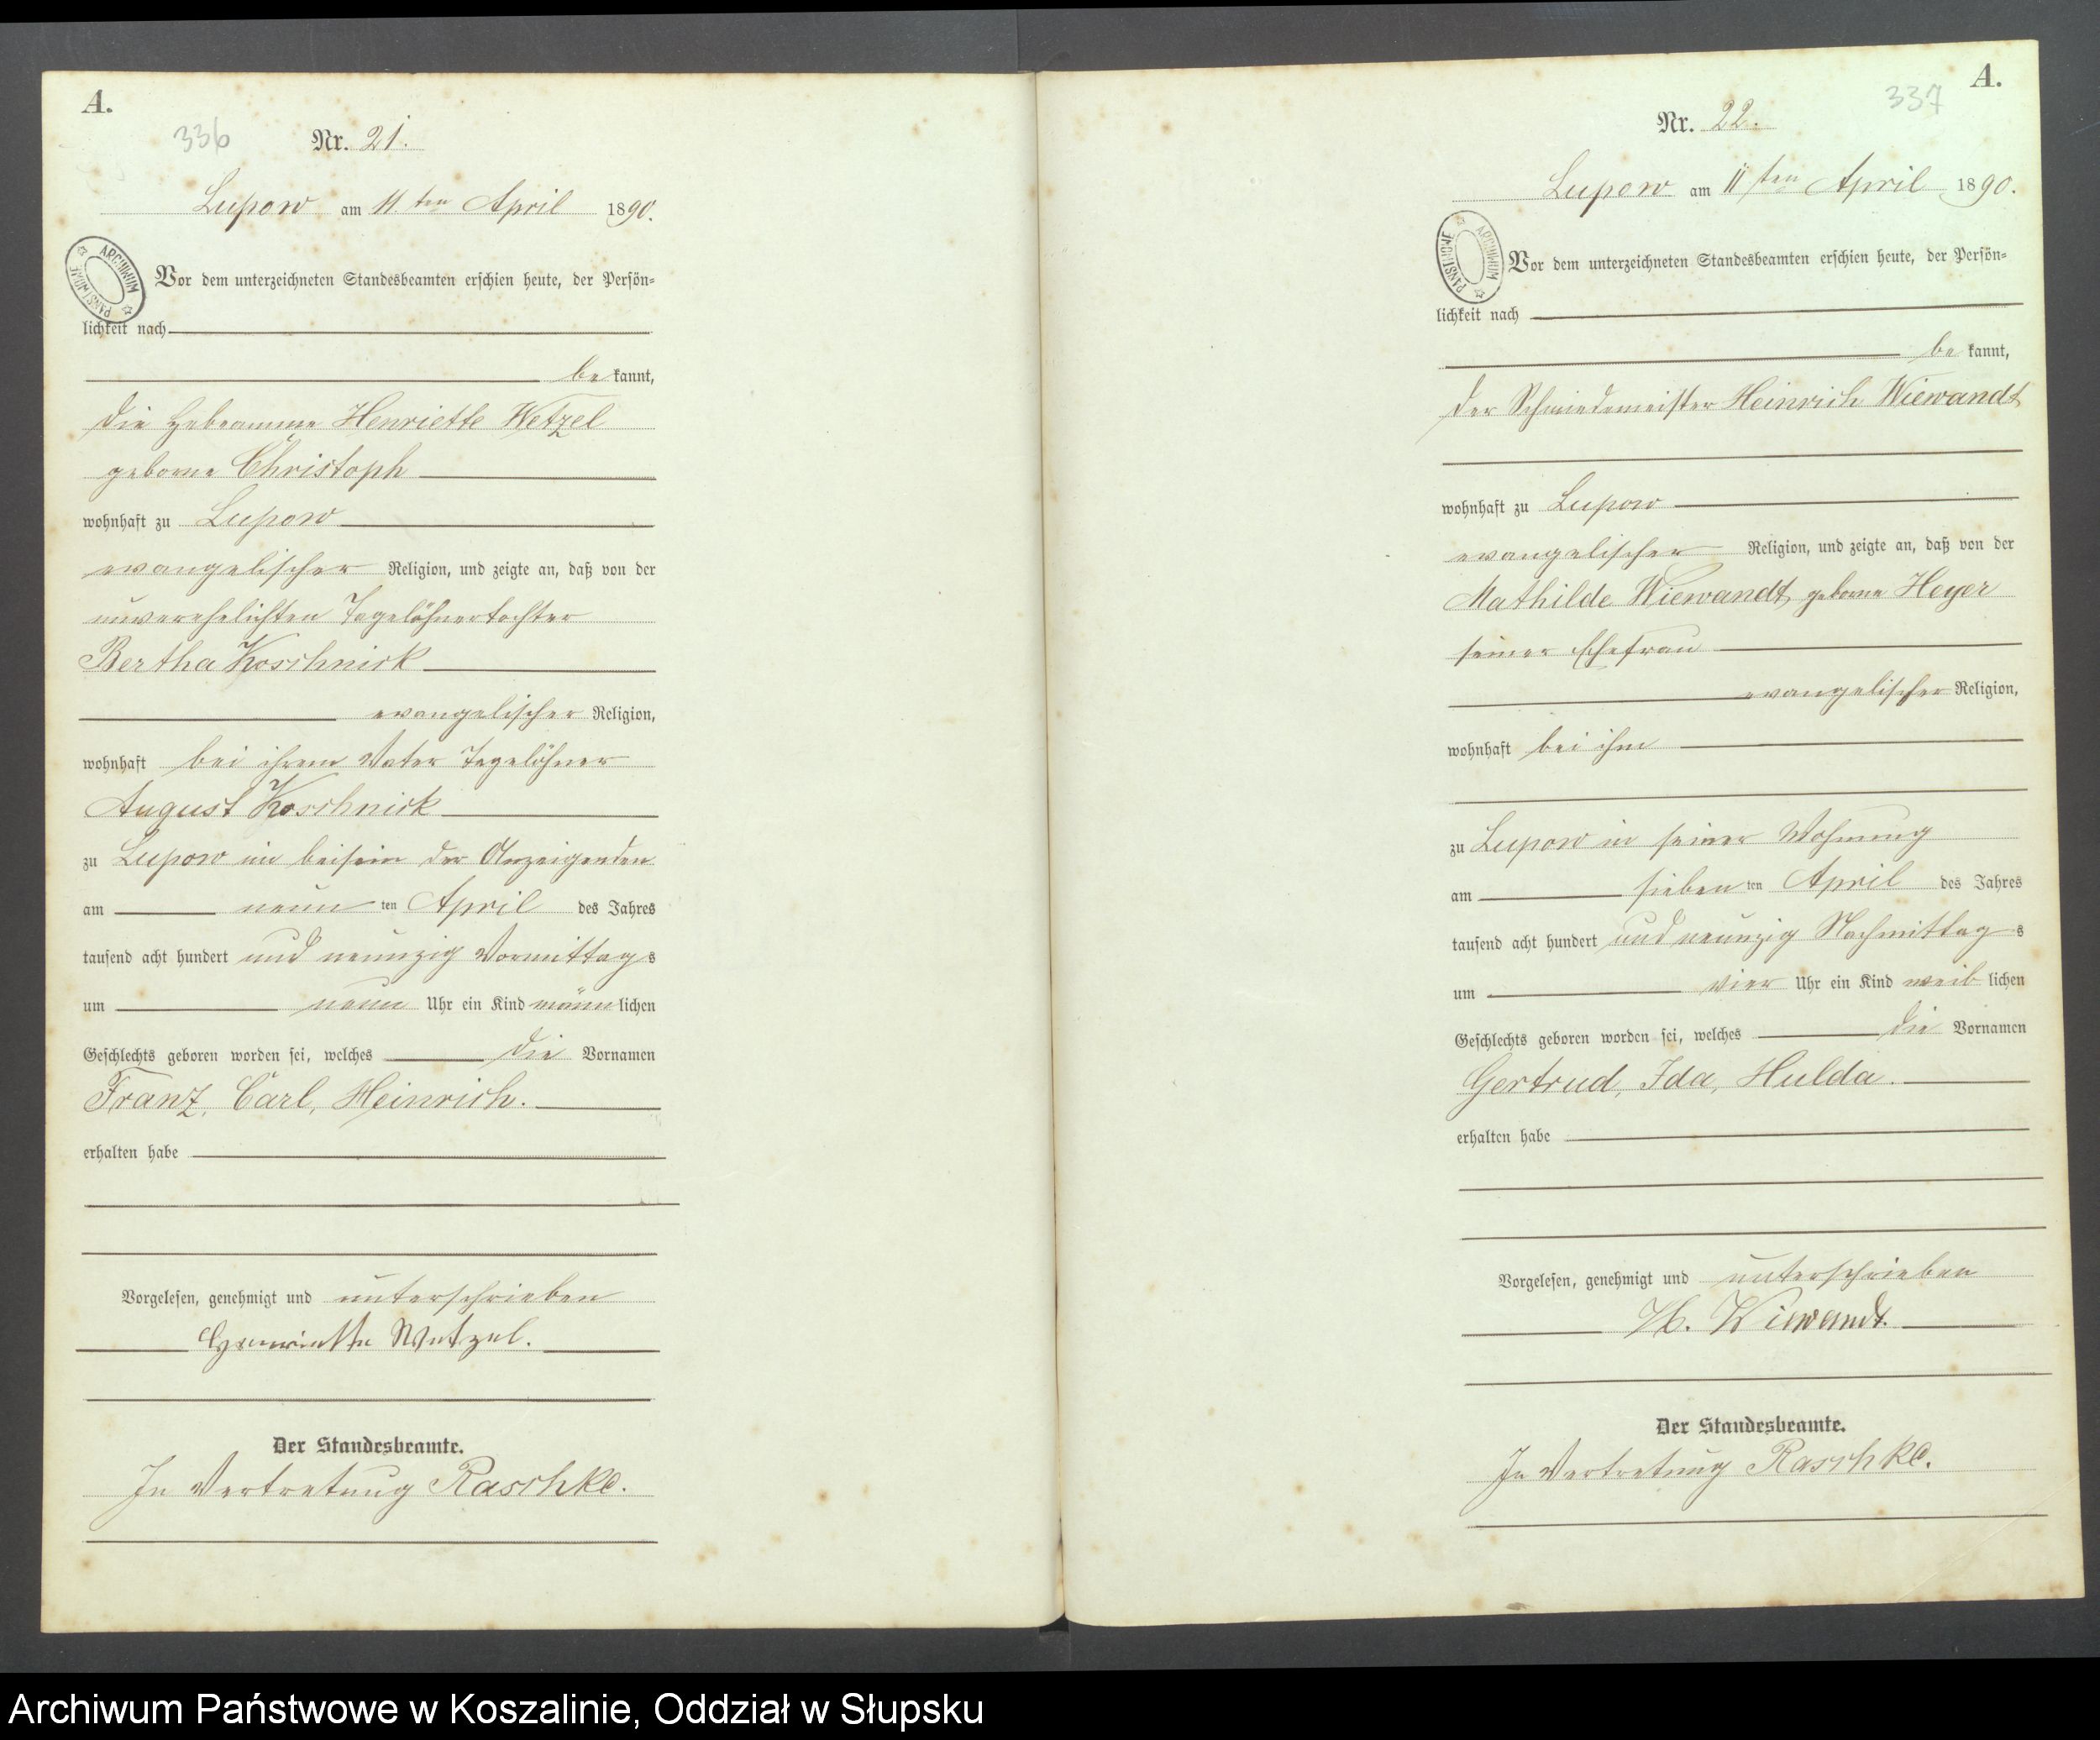 A.
336
Nr. 21.
Lupow am 11.ten April 1890.
ARCHIWUM PAŃSTWOWE
Vor dem unterzeichneten Standesbeamten erschien heute, der Persön-
lichkeit nach
bekannt,
die Hebeamme Henriette Wetzel
geborne Christoph
wohnhaft zu Lupow
evangelischer Religion, und zeigte an, daß von der
unverehelichten Tagelöhnertochter
Bertha Koschnick
evangelischer Religion,
wohnhaft bei ihrem Vater Tagelöhner
August Koschnick
zu Lupow im beisein der Anzeigenden
am neunten April des Jahres
tausend acht hundert und neunzig Vormittags
um neun Uhr ein Kind männlichen
Geschlechts geboren worden sei, welches die Vornamen
Franz, Carl, Heinrich.
erhalten habe
Vorgelesen, genehmigt und unterschrieben
Henriette Wetzel.
Der Standesbeamte.
In Vertretung Raschke.
A.
337
Nr. 22.
Lupow am 11ten April 1890.
ARCHIWUM PAŃSTWOWE
Vor dem unterzeichneten Standesbeamten erschien heute, der Persön-
lichkeit nach
bekannt,
der Schmiedemeister Heinrich Wiewandt
wohnhaft zu Lupow
evangelischer Religion, und zeigte an, daß von der
Mathilde Wiewandt geborne Heyer
seiner Ehefrau
evangelischer Religion,
wohnhaft bei ihm
zu Lupow in seiner Wohnung
am siebenten April des Jahres
tausend acht hundert und neunzig Nachmittags
um vier Uhr ein Kind weiblichen
Geschlechts geboren worden sei, welches die Vornamen
Gertrud, Ida, Hulda.
erhalten habe
Vorgelesen, genehmigt und unterschrieben
H. Wiewandt.
Der Standesbeamte.
In Vertretung Raschke.
Archiwum Państwowe w Koszalinie, Oddział w Słupsku